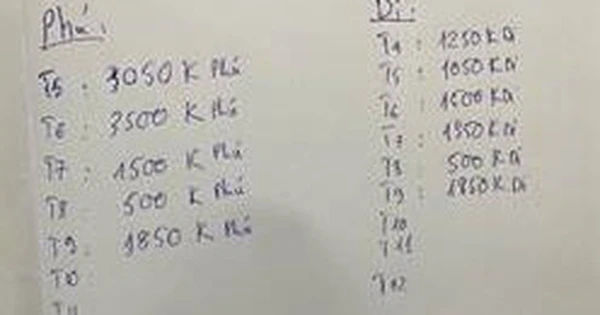 Phú:
T5 : 3050 K Phú
T6 : 3500 K Phú
T7 : 1500 K Phú
T8 500 K Phú
T9 : 1850 K Phú
T10
T11
Dì:
T4 : 1250 K Dì
T5 : 1050 K Dì
T6 1600 K Dì
T7 : 1950 K Dì
T8 500 K Dì
T9 : 1850 K Dì
T10
T11
T12